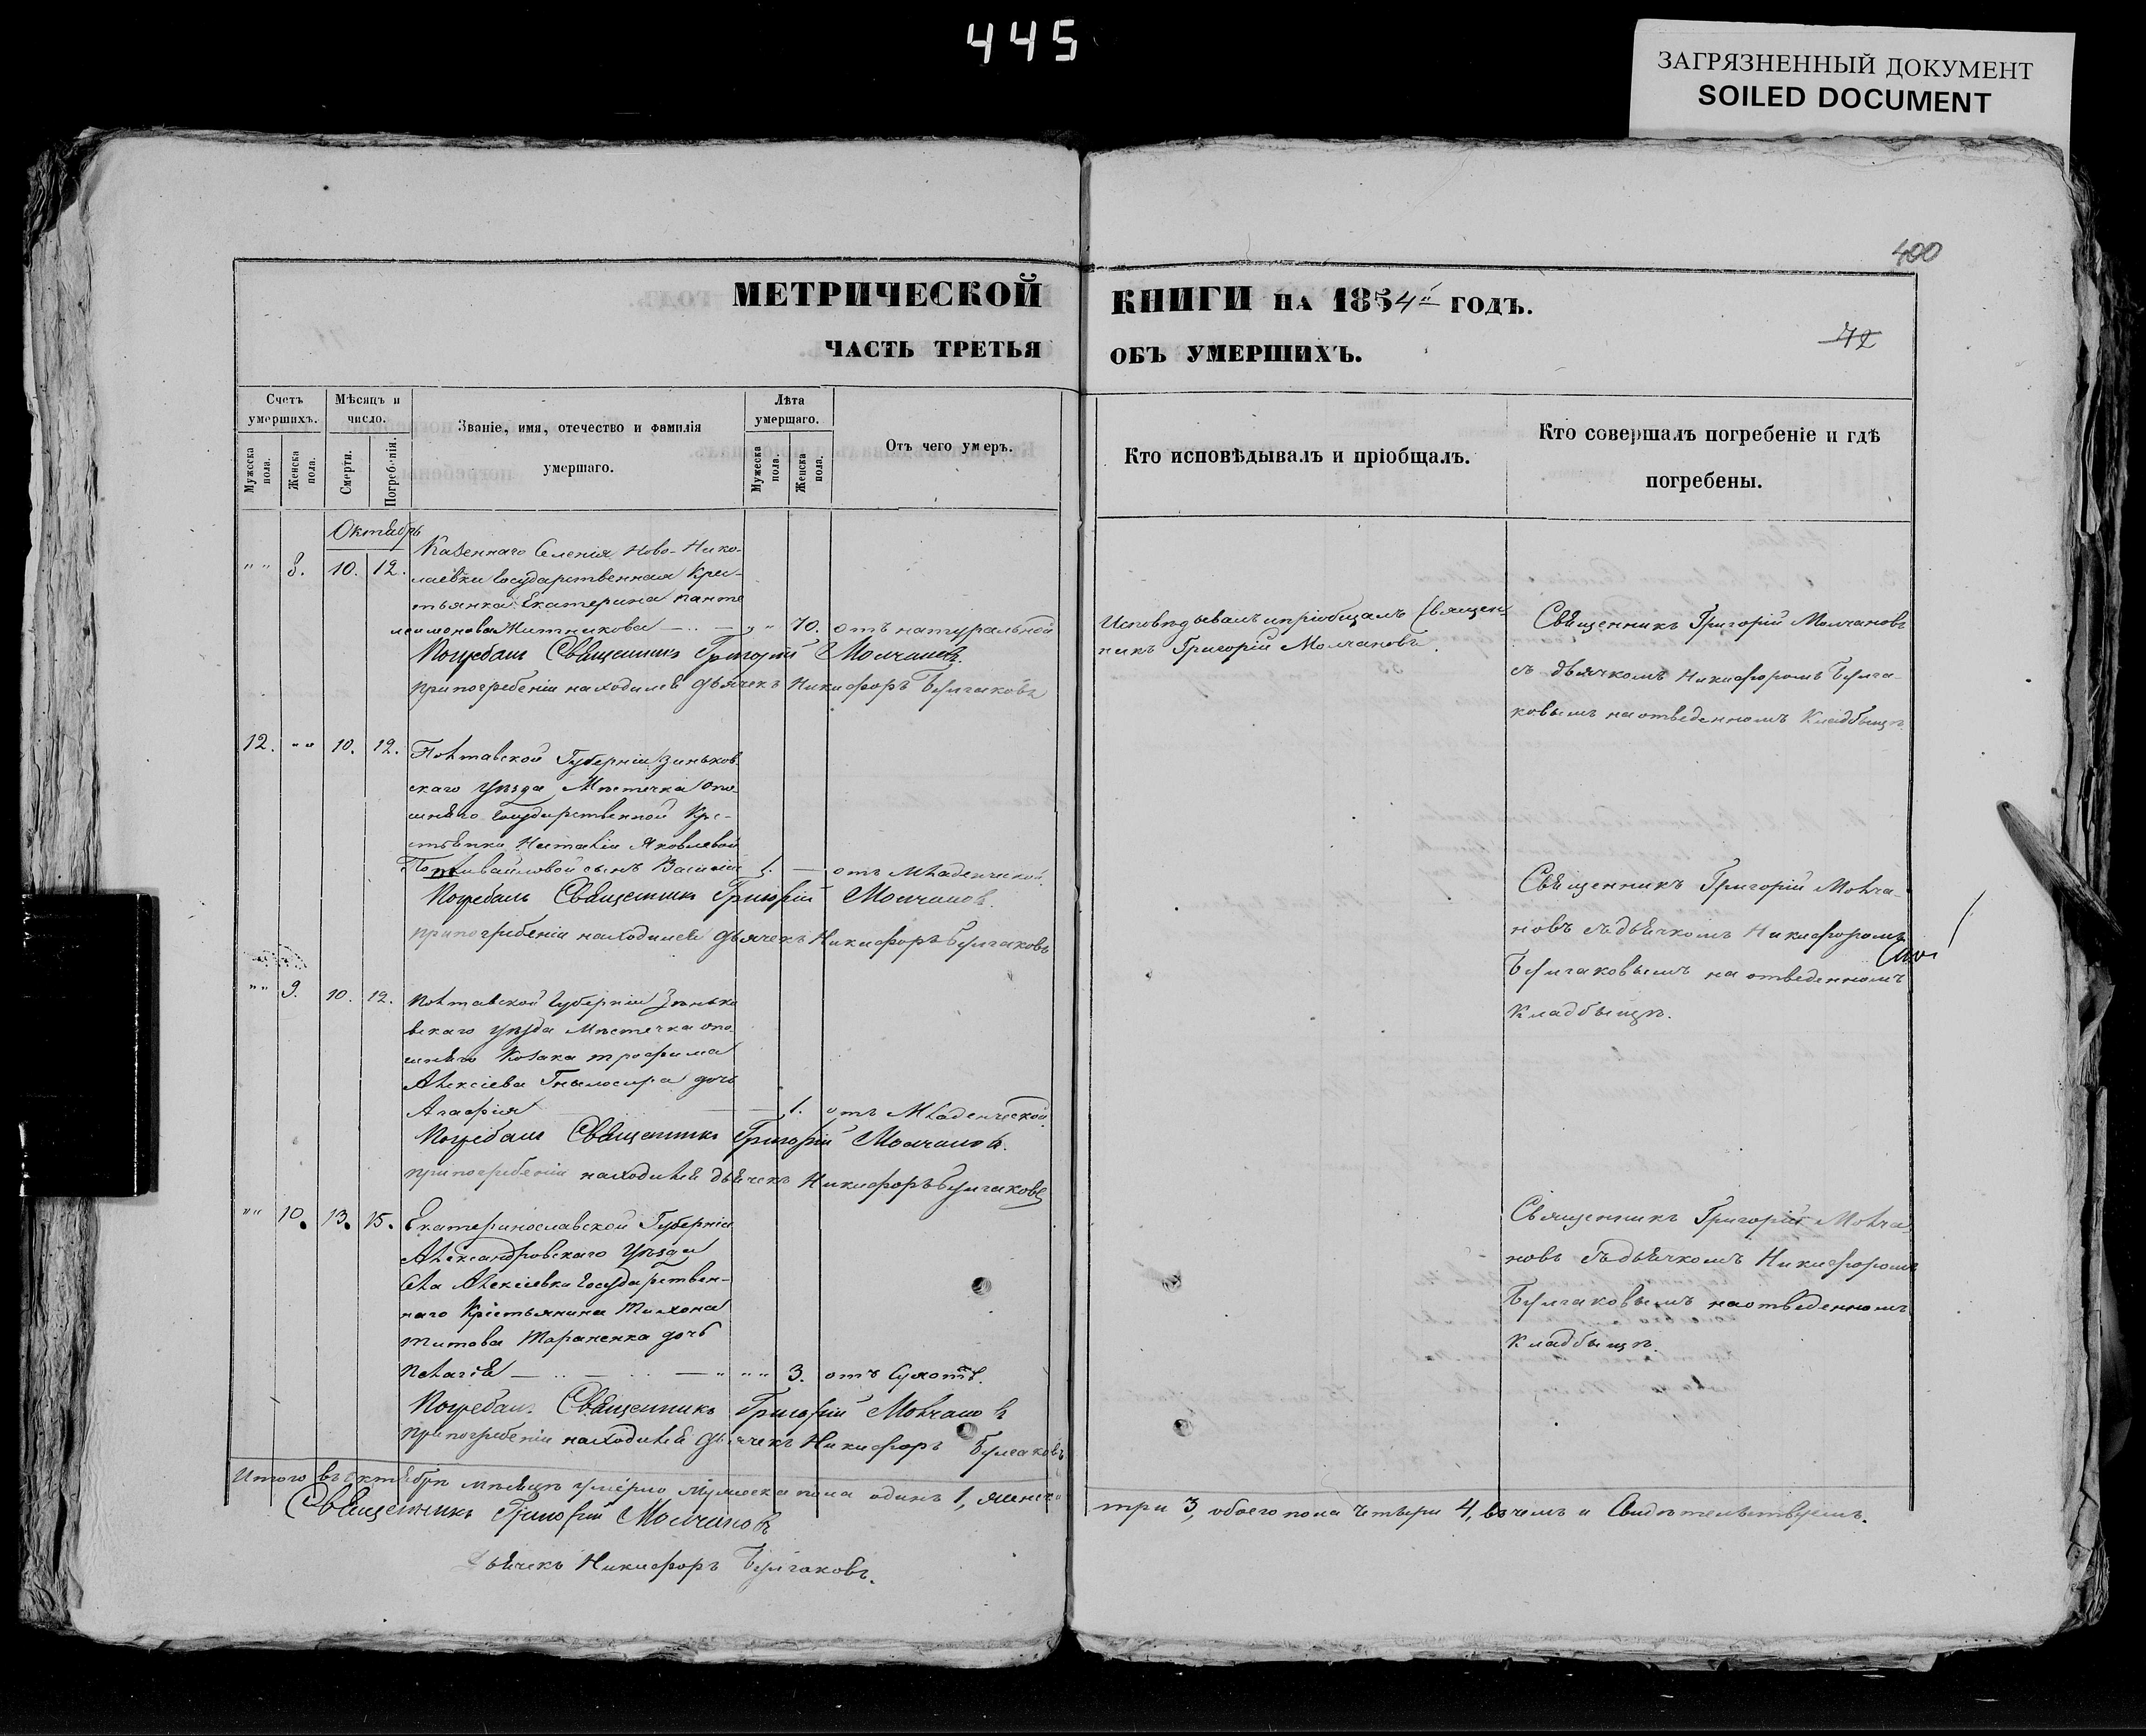 445
ЗАГРЯЗНЕННЫЙ ДОКУМЕНТ
SOILED DOCUMENT
400
МЕТРИЧЕСКОЙ
КНИГИ НА 1854й ГОДЪ.
72
ЧАСТЬ ТРЕТЬЯ
ОБЪ УМЕРШИХЪ.
Счетъ умершихъ.
Мужеска пола.
Женска пола.
Мѣсяцъ и число.
Смерти.
Погребенія.
Званіе, имя, отечество и фамилія
умершаго.
Лѣта умершаго.
Мужеска пола.
Женска пола.
Отъ чего умеръ.
Кто исповѣдывалъ и пріобщалъ.
Кто совершалъ погребеніе и гдѣ
погребены.
Октябрь
Казеннаго Селенія Ново-Нико-
"" 8. 10. 12. лаевки Государственная Крес-
тьянка Екатерина Панте
леимонова Житникова — "" 70. отъ натуральной
Погребалъ Священникъ Григорій Молчановъ.
при погребеніи находился дьячекъ Никифоръ Булгаковъ
Исповѣдывалъ и пріобщалъ Священ-
никъ Григорій Молчановъ.
Священникъ Григорій Молчановъ
съ дьячкомъ Никифоромъ Булга-
ковымъ на отведенномъ Кладбыщѣ
12. "" 10. 12. Полтавской Губерніи Зиньков-
скаго уѣзда Мѣстечка Опо-
шнаго Государственной Кре-
стьянки Наталіи Яковлевой
сынъ Василій 1. — отъ Младенческой.
Погребалъ Священникъ Григорій Молчановъ.
при погребеніи находился дьячекъ Никифоръ Булгаковъ
Священникъ Григорій Молча-
новъ съ дьячкомъ Никифоромъ
Булгаковымъ на отведенномъ
Кладбыщѣ.
"" 9. 10. 12. Полтавской Губерніи Зѣнько
вскаго уѣзда Мѣстечка Опо-
шнаго Козака Трофима
Алексіева Гнылосыра дочь
Агафія — 1. отъ Младенческой.
Погребалъ Священникъ Григорій Молчановъ.
при погребеніи находился дьячекъ Никифоръ Булгаковъ
"" 10. 13. 15. Екатеринославской Губерніи
Александровскаго уѣзда
Села Алексіевки Государствен-
наго Крестьянина Тихона
Титова Тараненка дочь
Пелагія — "" 3. отъ Сухотѣ.
Погребалъ Священникъ Григорій Молчановъ
при погребеніи находился дьячекъ Никифоръ Булгаковъ
Священникъ Григорій Молча-
новъ съ дьячкомъ Никифоромъ
Булгаковымъ на отведенномъ
Кладбыщѣ.
Итого въ октябрѣ мѣсяцѣ умерло мужеска пола одинъ 1, женска
три 3, обоего пола четыри 4, въ чемъ и Свидѣтельствуемъ.
Священникъ Григорій Молчановъ
Дьячекъ Никифоръ Булгаковъ.